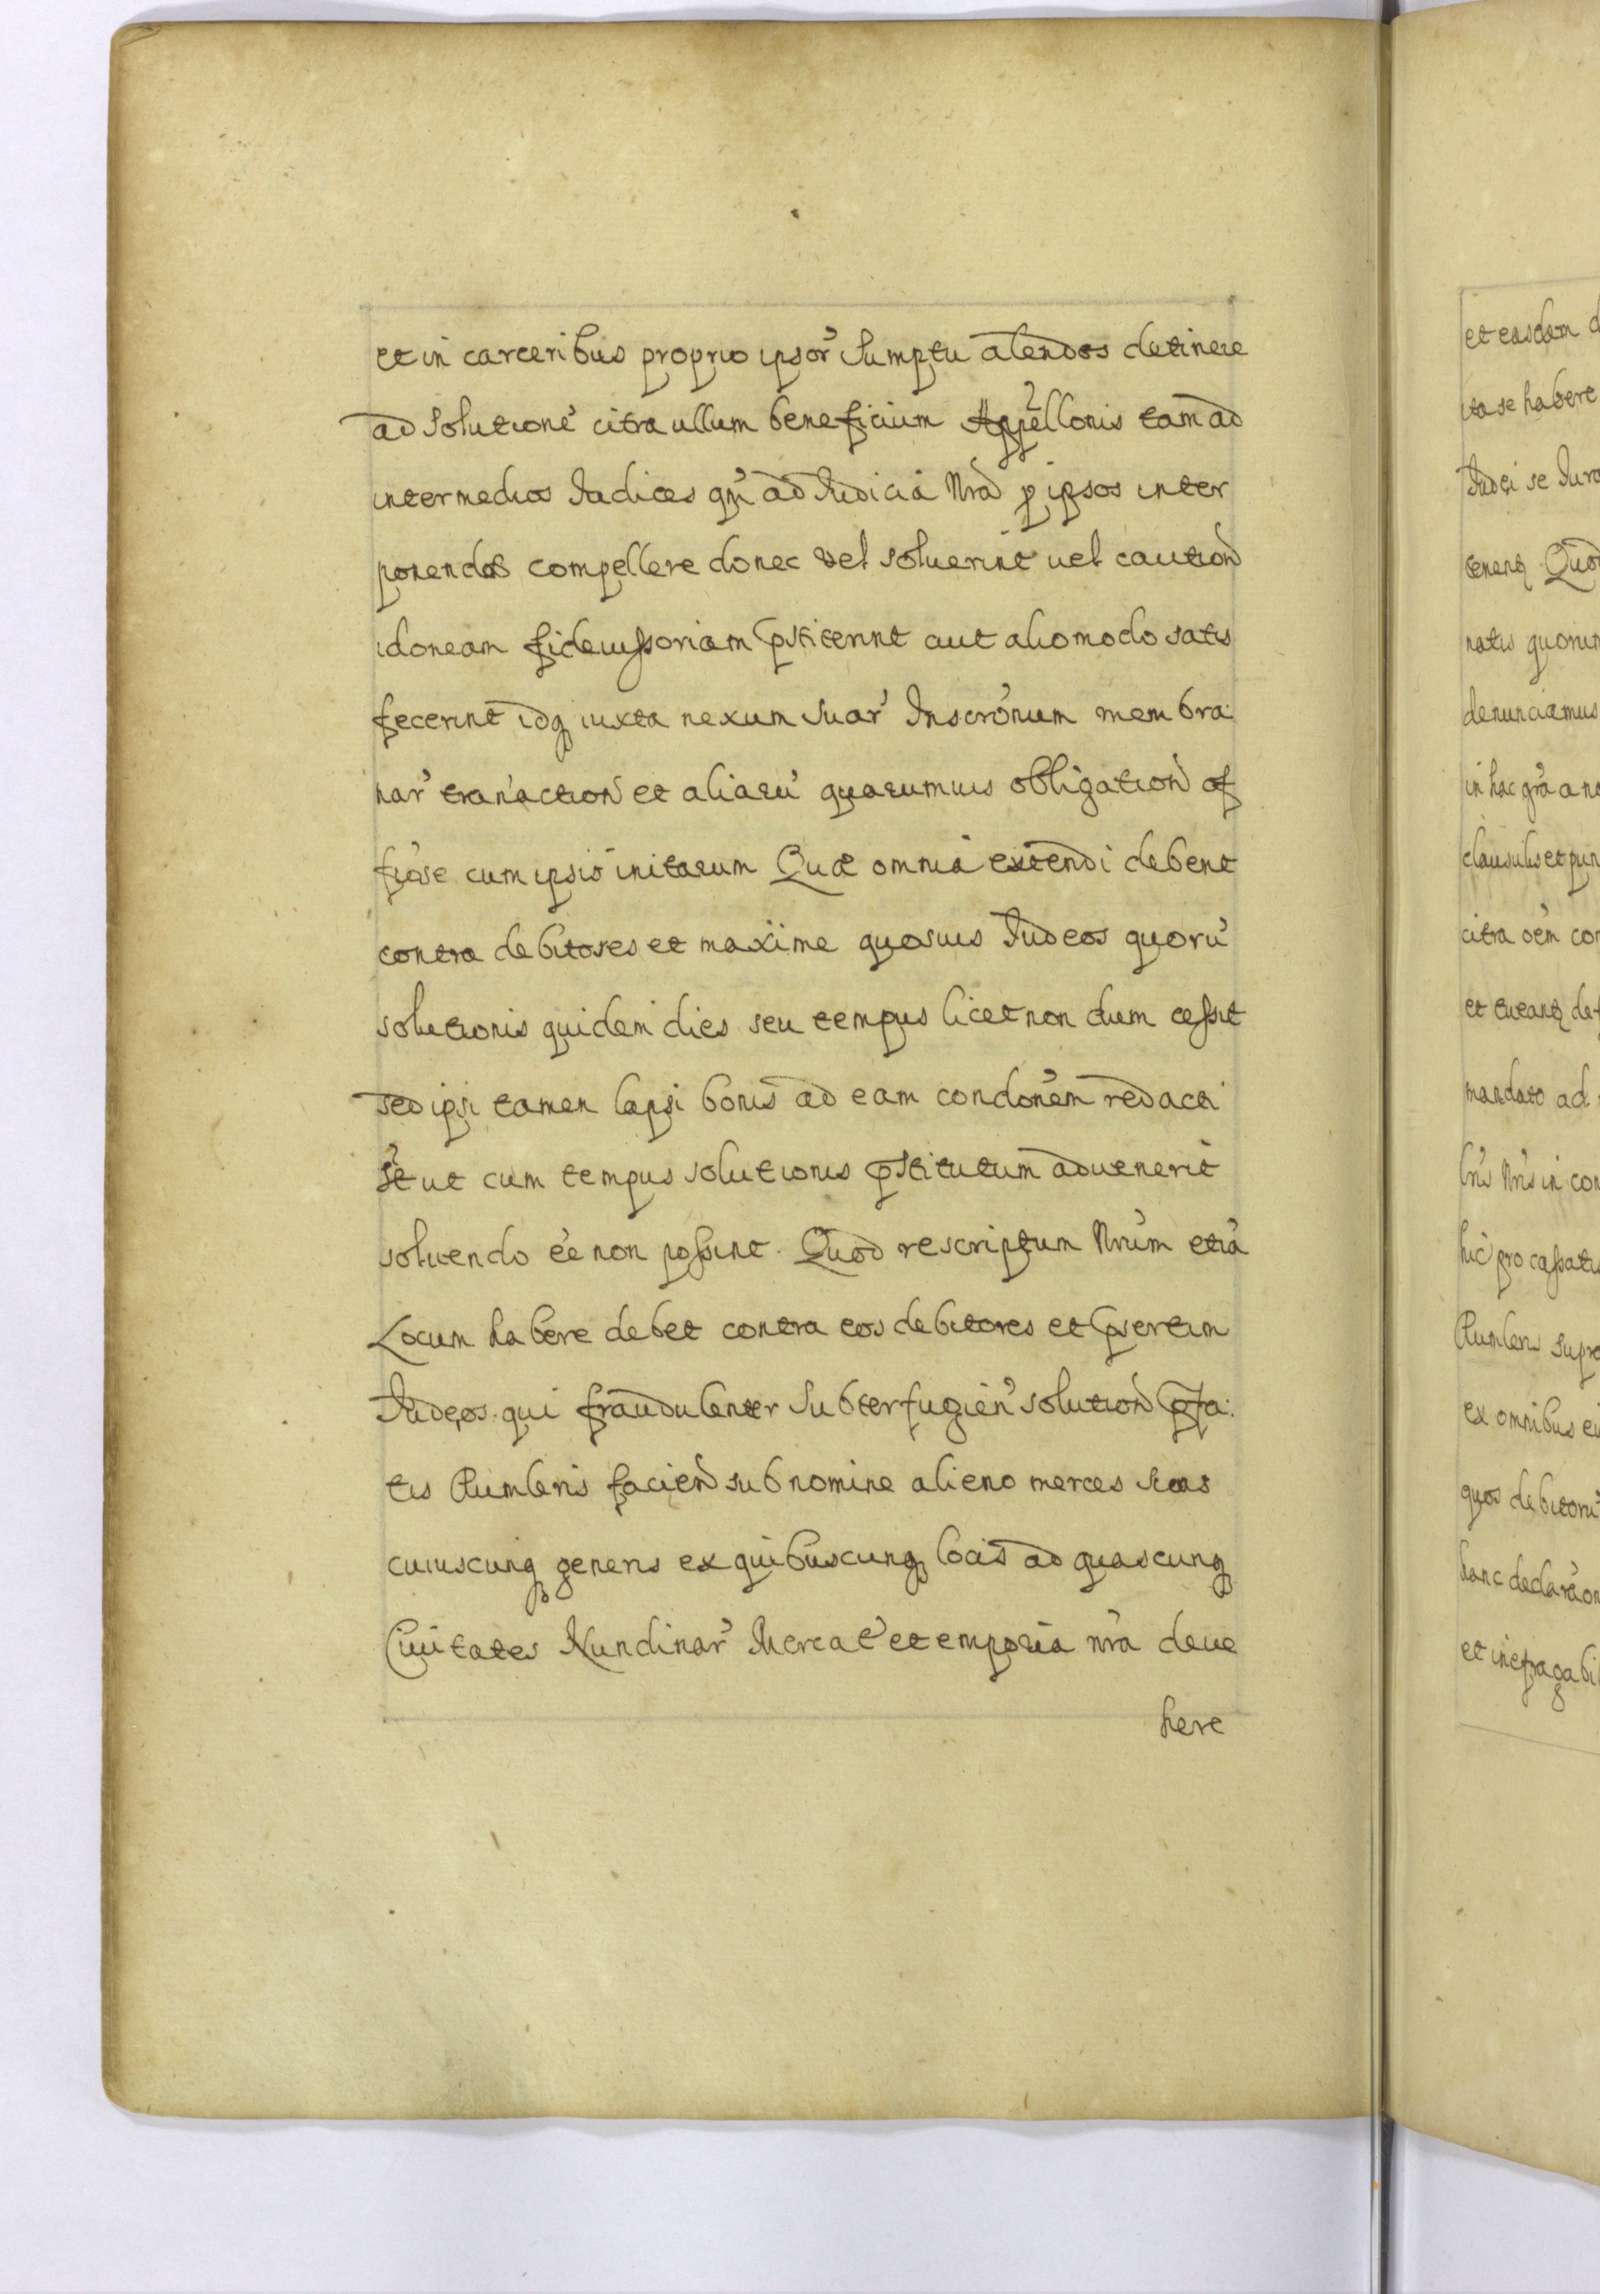 et in carceribus proprio ipsor' sumptu alendos detinere
ad solutione' citra ullum beneficium Appellonis tam ad
intermedios Iudices qu' ad Iudicia Nra p ipsos inter
ponendas compellere donec vel soluerint uel caution
idoneam fideiussoriam pstiterint aut alio modo satis
fecerint idq iuxta nexum suar' Inscro'num membra:
nar' tran'action et aliaru' quarumuis obligation of
fi'ose cum ipsis initarum Quæ omnia extendi debent
contra debitores et maxime quosuis Iudeos quoru'
solutionis quidem dies seu tempus licet non dum cessit
sed ipsi tamen lapsi bonis ad eam condone'm redacti
s't ut cum tempus solutionis pstitutum aduenerit
soluendo e'e non possint. Quod rescriptum Nru'm etia'
Locum habere debet contra eos debitores et psertim
Iudęos qui fraudulenter subterfugien' solution pfa:
tis Rumleris facien sub nomine alieno merces suas
cuiuscunq generis ex quibuscunq locis ad quascunq
Ciuitates Nundinar' Mercat' et emporia nra deue
here
et easdem
ita se habere
Iudęi se Iura
tenenq Quod
natis quorum
denunciamus
in hac gra' a
clausulis et pun
citra oe'm con
et tueanq de
mandato ad
lris Nris in con
hic pro cassatis
Rumleris supra
ex omnibus
quos debitoru'
hanc declara'on
et inefragabil